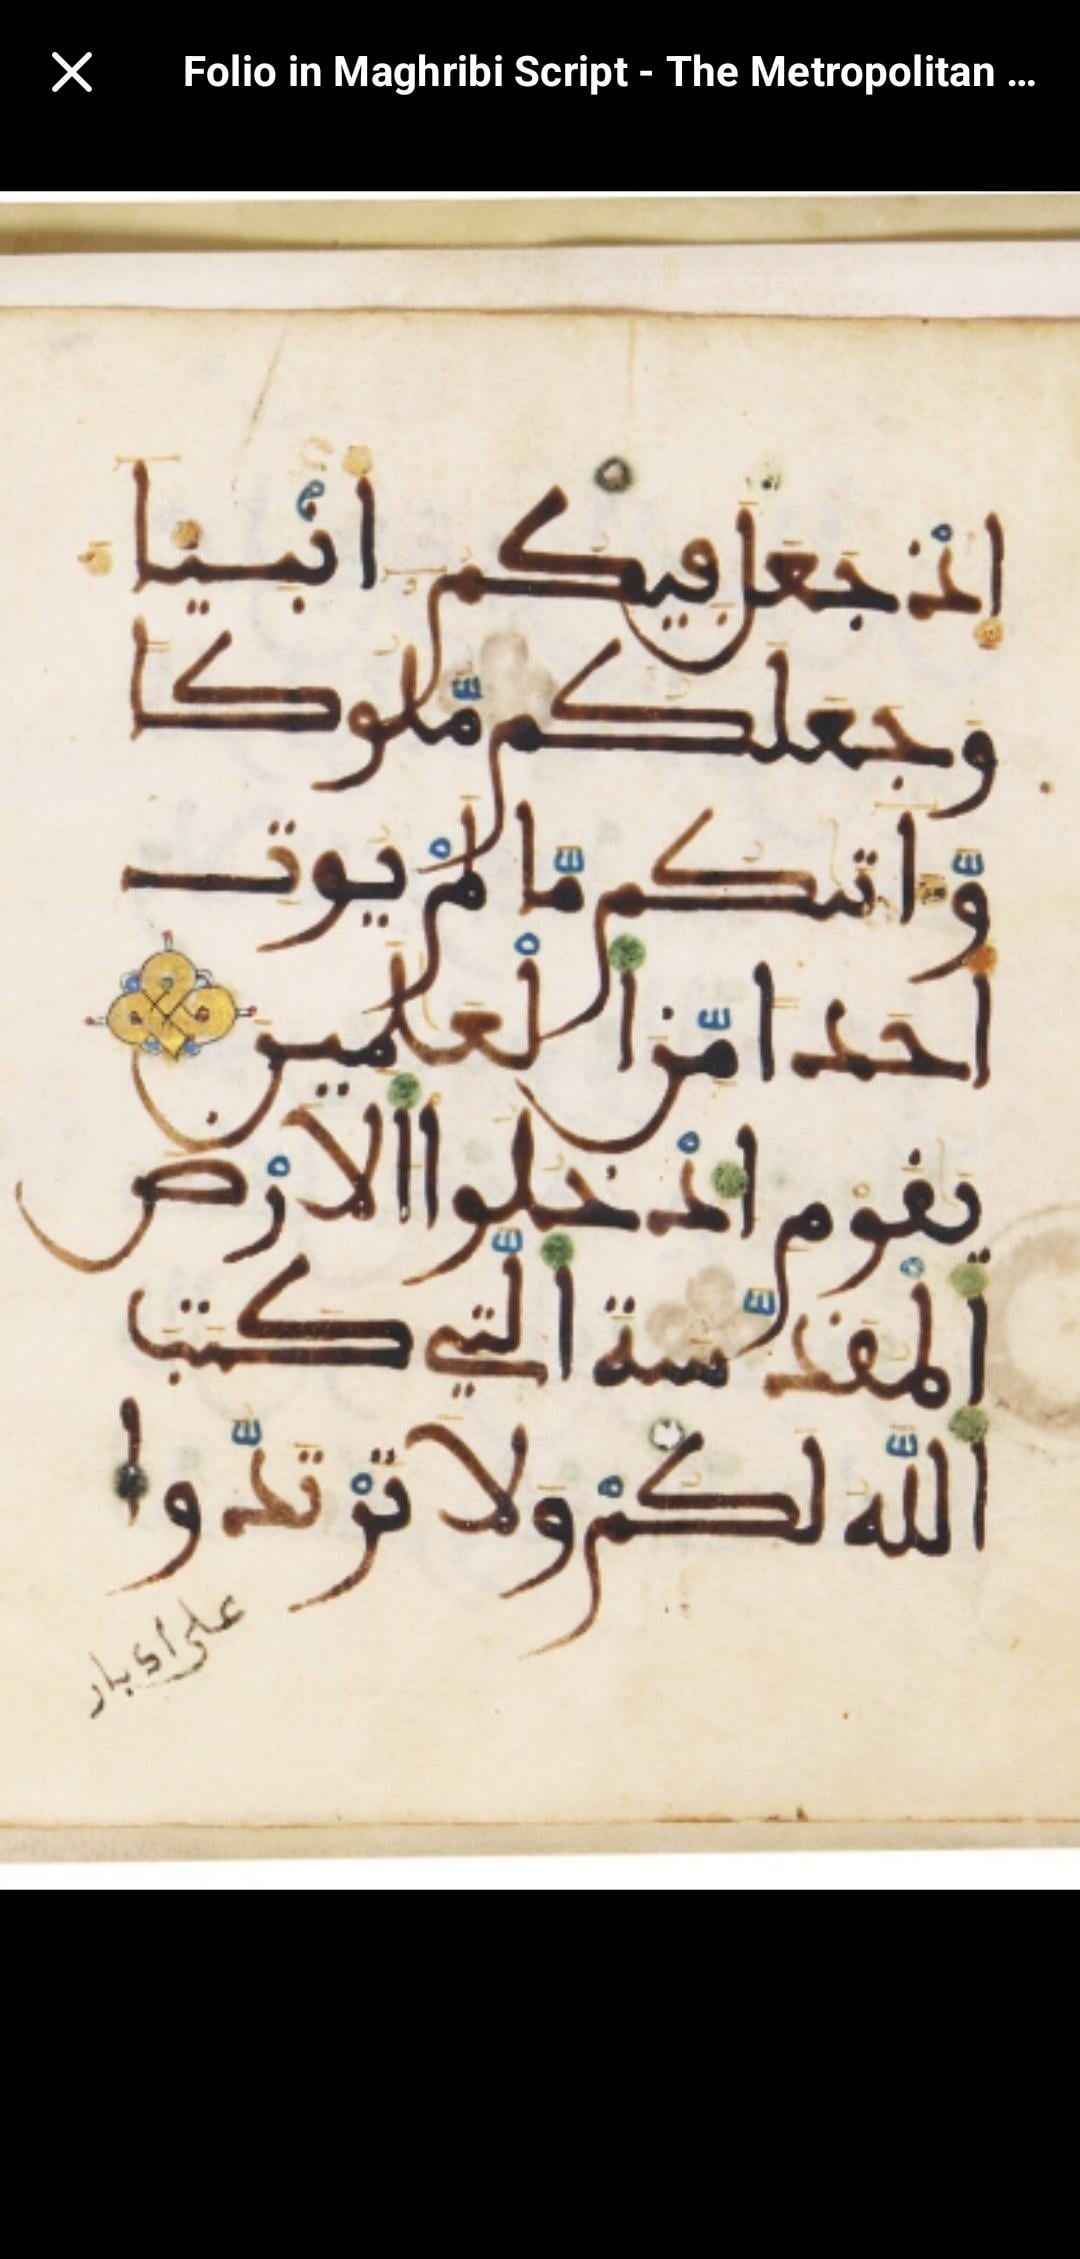 Folio in Maghribi Script - The Metropolitan ...
اذ جعل فيكم أنبيا
وجعلكم مّلوكا
وّاتيكم مّا لمْ يوت
احدا مّن الْعلمين
يقوم ادْخلوا الارْض
الْمقدّسة الّتي كتب
اللّه لكمْ ولا ترْتدّوا
على ادبار